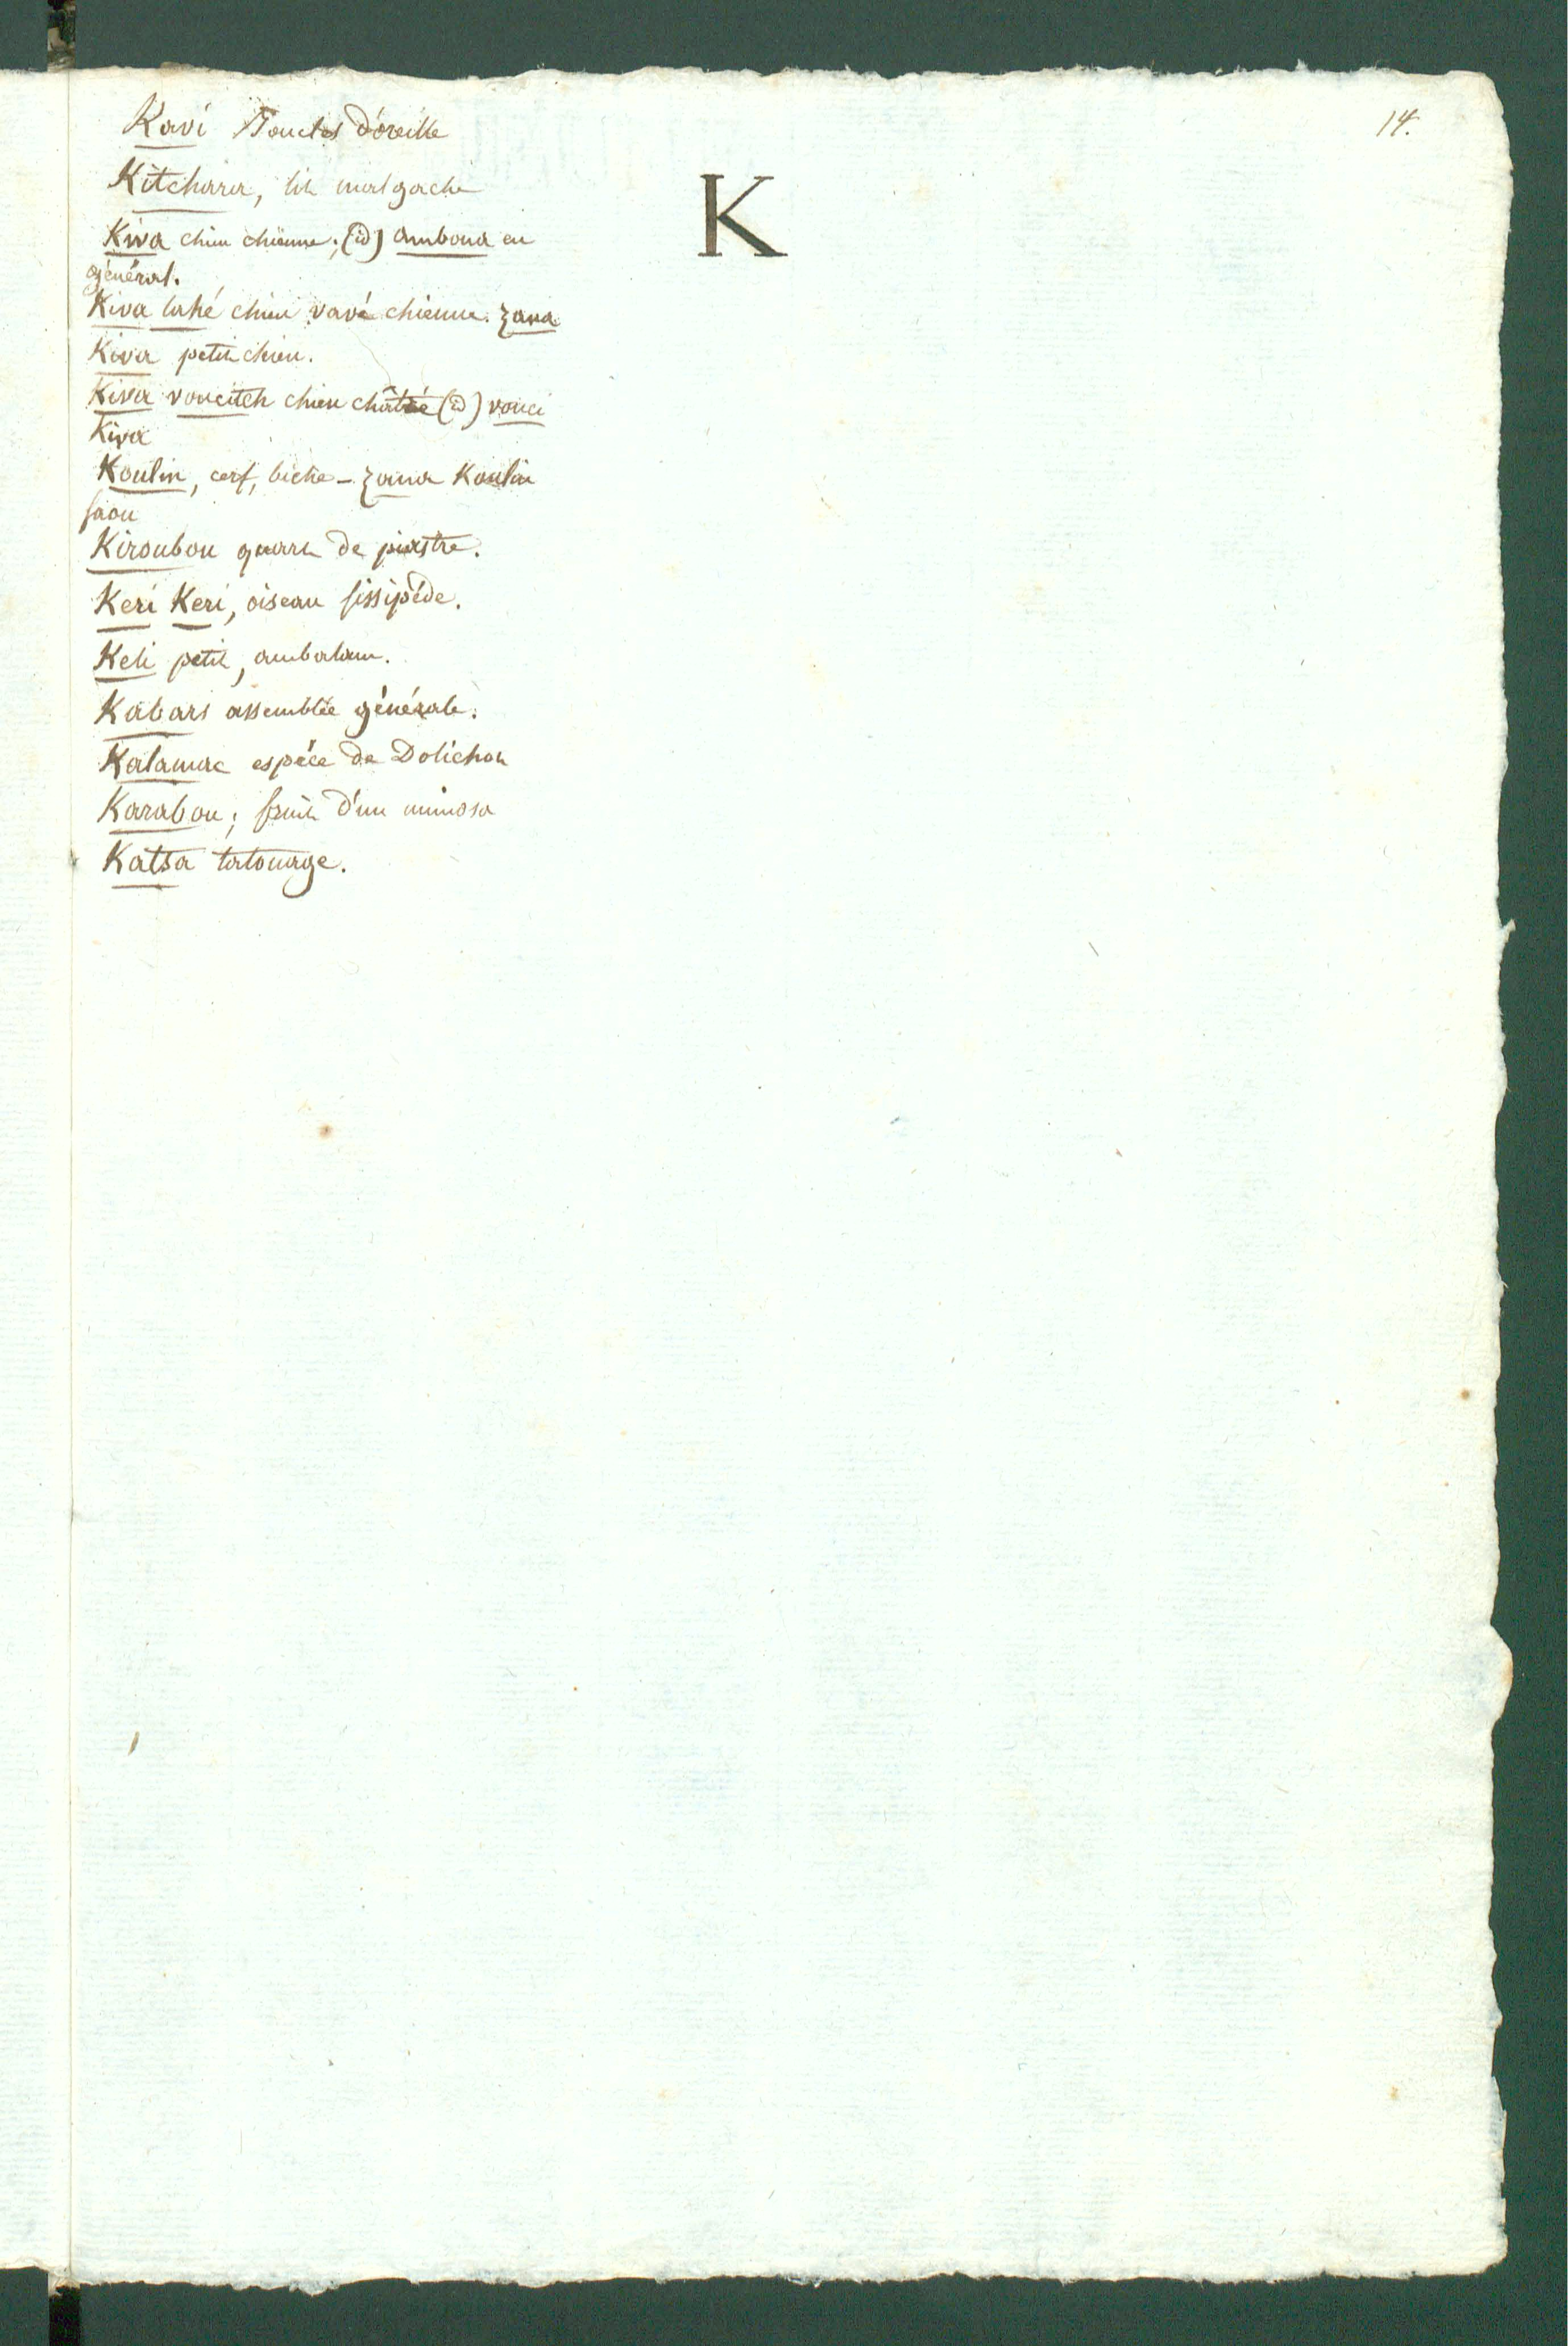 14.
K
Kavi Boucles d'oreille
Kitchara, lit malgache
Kiva chien chienne; (id) amboua en
général.
Kiva lahé chien vavé chienne. zana
Kiva petit chien.
Kiva vouciteh chien châtré (id) vouci
Kiva
Koulin, cerf, biche - zana Koulin
faou
Kiroubou quart de piastre.
Keri Keri, oiseau fissipède.
Keli petit, ambalam.
Kabars assemblée générale.
Kalamac espéce de Dolichos
Karabou; fruit d'un mimosa
Katsa tatouage.